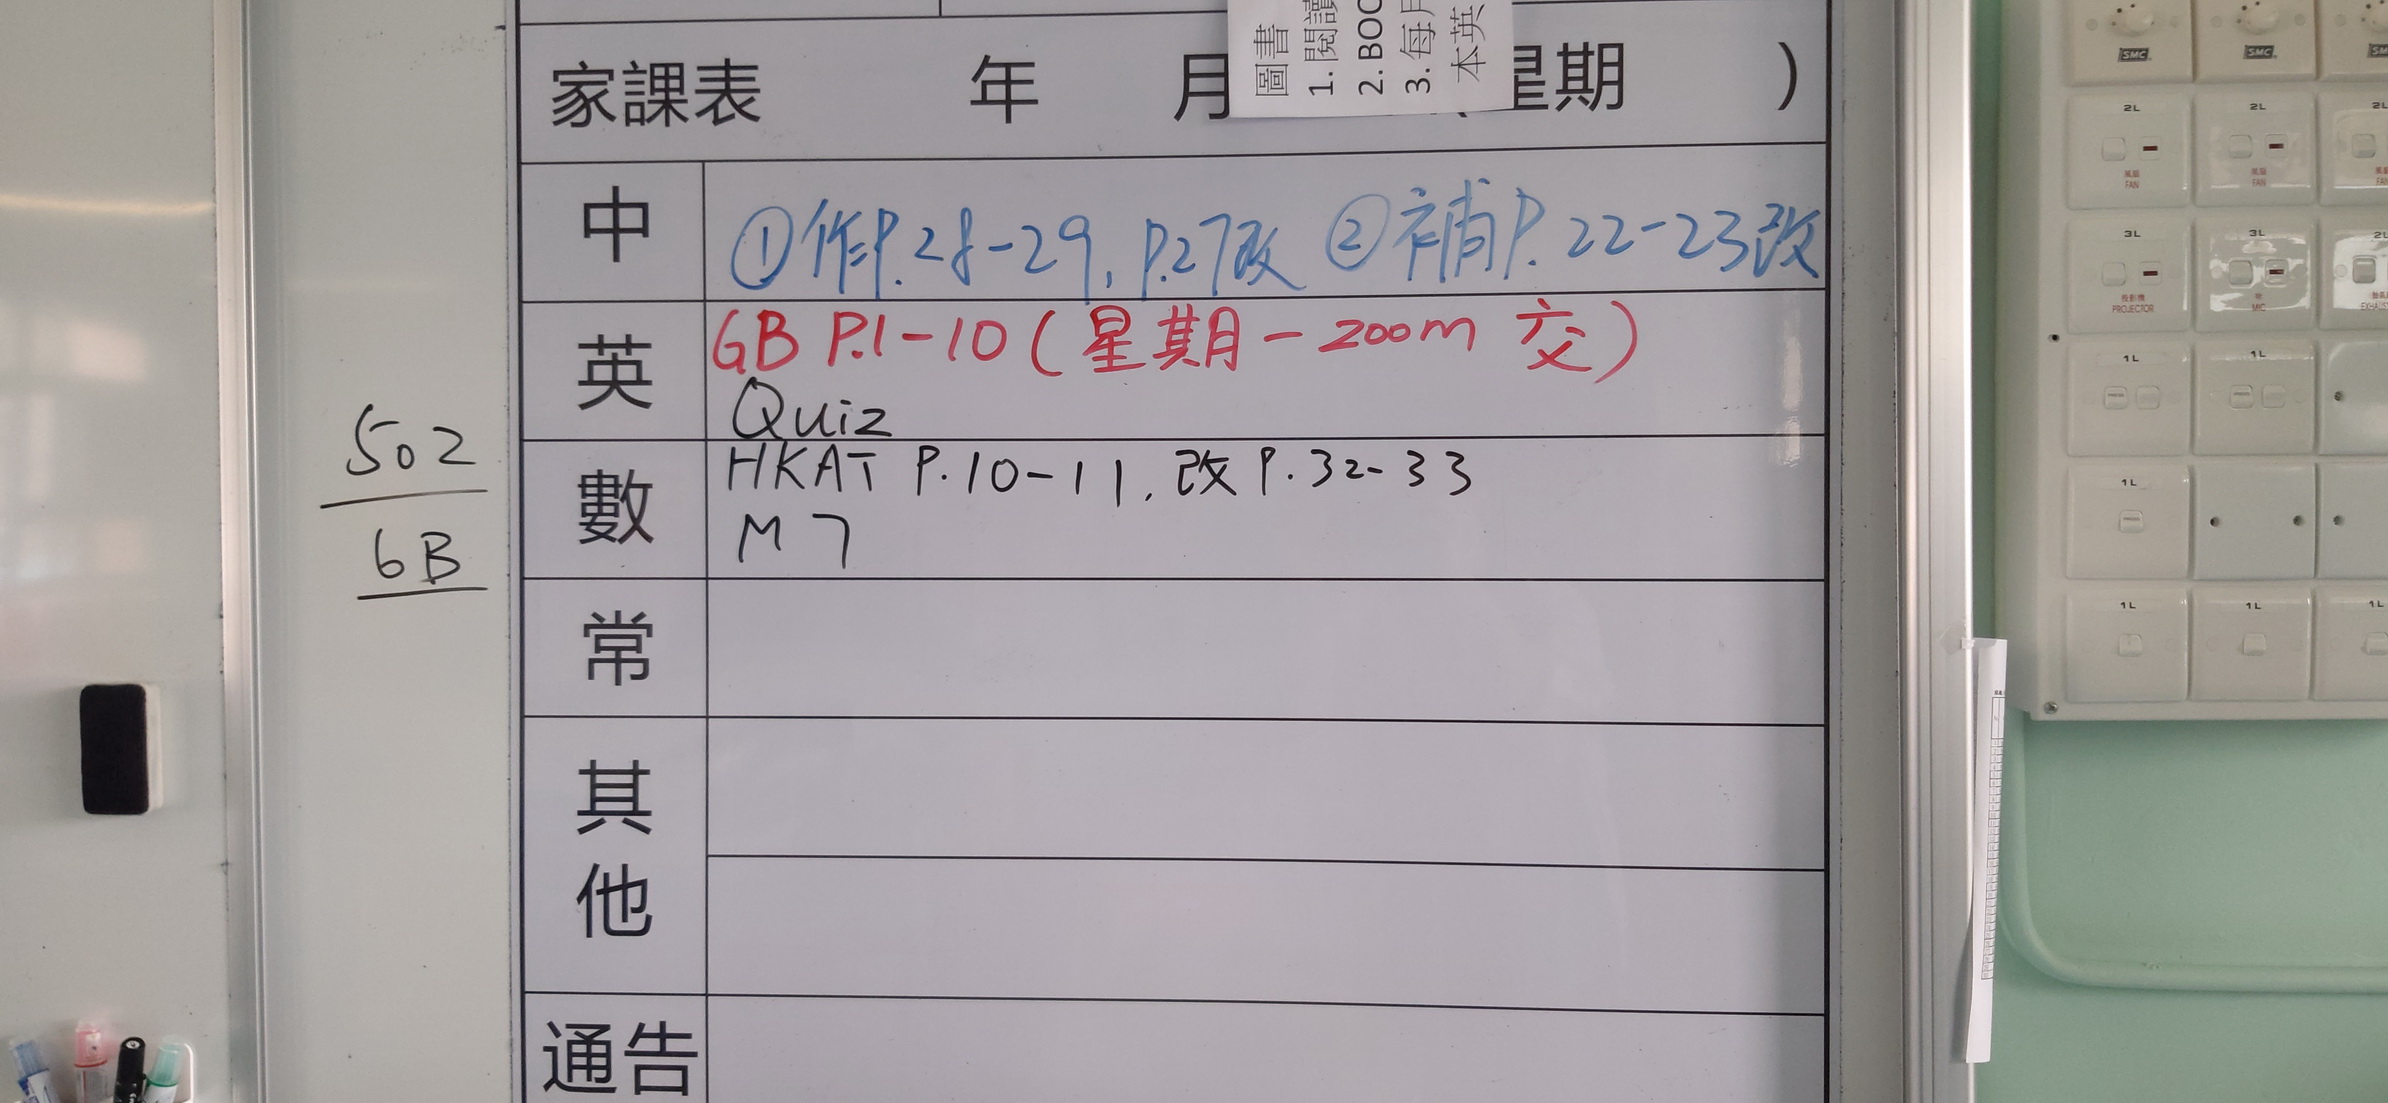 圖書
1. 閱讀
2. BOO
3. 每月
本英
家課表 年 月 星期 )
中 ①作P.28-29, P.27改 ②補P.22-23改
英 GB P.1-10 (星期一 zoom 交)
Quiz
數 HKAT P.10-11, 改P.32-33
M7
常
其他
通告
502
6B
SMC SMC SM
2L 2L 2L
風扇 風扇
FAN FAN
3L 3L 2L
投影機
PROJECTOR MIC EXHAUS
1L 1L
PRESS PRESS
1L
PRESS
1L 1L 1L